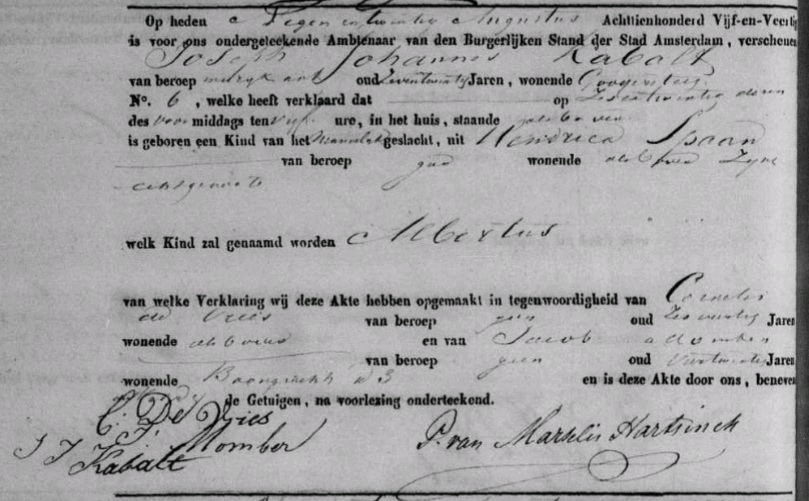 Op heden Negen en twintig Augustus Achttienhonderd Vijf-en-Veertig
is voor ons ondergeteekende Ambtenaar van den Burgerlijken Stand der Stad Amsterdam, verschenen
Joseph Johannes Kabalt
van beroep muzykant oud Jaren, wonende Googensteeg
No. 6, welke heeft verklaard dat op dezer
des voormiddags ten vijf ure, in het huis, staande als boven
is geboren een Kind van het Mannelijk geslacht, uit Hendrica Spaan
van beroep geen wonende als boven Zyne
echtgenoote
welk Kind zal genaamd worden Albertus
van welke Verklaring wij deze Akte hebben opgemaakt in tegenwoordigheid van Cornelis
de Vries van beroep geen oud Jaren
wonende als boven en van Jacob
van beroep geen oud Jaren
wonende No 3 en is deze Akte door ons, beneven
de Getuigen, na voorlezing onderteekend.
C. De Vries
J. Momber
J J Kabalt
P. van Marselis Hartsinck